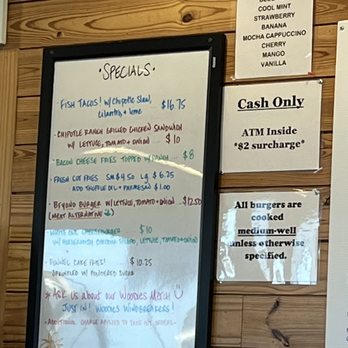 BERRY
COOL MINT
STRAWBERRY
BANANA
MOCHA CAPPUCCINO
CHERRY
MANGO
VANILLA
• SPECIALS •
FISH TACOS! w/ CHIPOTLE Slaw,
Cilantro, + lime $16.75
• CHIPOTLE RANCH GRILLED CHICKEN SANDWICH
w/ LETTUCE, TOMATO + ONION ..... $10
• BACON CHEESE FRIES TOPPED w/ RANCH ... $8
• FRESH CUT FRIES SM $4.50 LG $6.75
ADD TRUFFLE OIL + PARMESAN $1.00
• BEYOND BURGER w/ LETTUCE, TOMATO + ONION ... $12.50
(MEAT ALTERNATIVE)
$10
LETTUCE, TOMATO + ONION
• FUNNEL CAKE FRIES! $10.25
SPRINKLED w/ POWDERED SUGAR
* ASK US ABOUT OUR WOODIES MERCH
JUST IN! WOODIES WINDBREAKERS!
• ADDITIONAL CHARGE APPLIED TO
Cash Only
ATM Inside
*$2 surcharge*
All burgers are
cooked
medium-well
unless otherwise
specified.